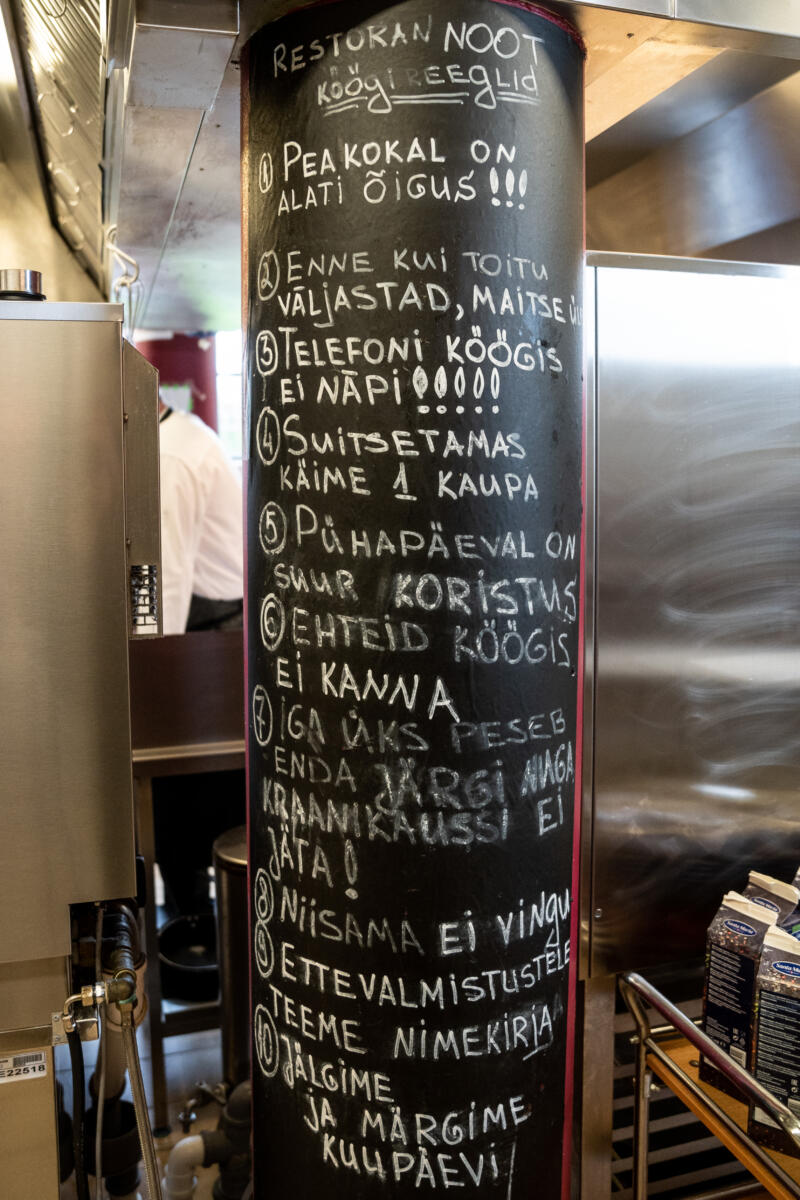 RESTORAN NOOT
KÖÖGIREEGLID
① PEAKOKAL ON
ALATI ÕIGUS!!!
② ENNE KUI TOITU
VÄLJASTAD, MAITSE
③ TELEFONI KÖÖGIS
EI NÄPI!!!!!
④ SUITSETAMAS
KÄIME 1 KAUPA
⑤ PÜHAPÄEVAL ON
SUUR KORISTUS
⑥ EHTEID KÖÖGIS
EI KANNA
⑦ IGA ÜKS PESEB
ENDA JÄRGI NUGA
KRAANIKAUSSI EI
JÄTA!
⑧ NIISAMA EI VINGU
⑨ ETTEVALMISTUSTELE
TEEME NIMEKIRJA
⑩ JÄLGIME
JA MÄRGIME
KUUPÄEVI
E22518
Santa Maria
Santa Maria